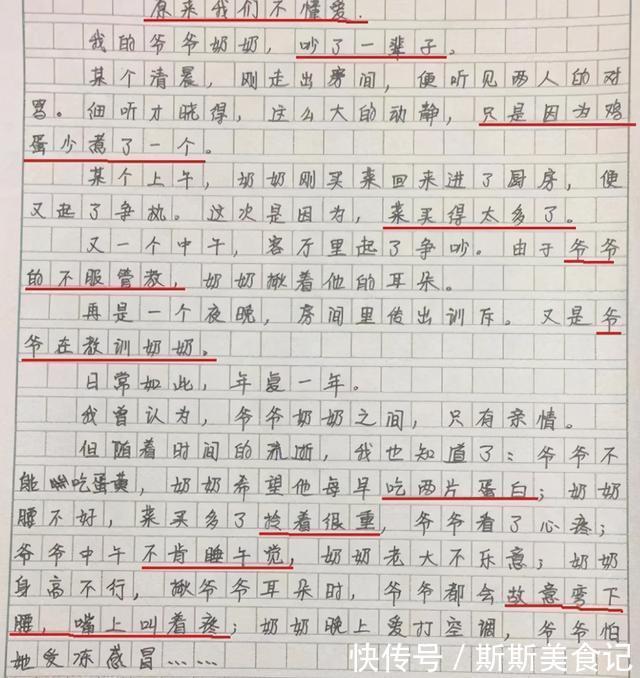 原来我们不懂爱.
我的爷爷奶奶，吵了一辈子。
某个清晨，刚走出房间，便听见两人的对
骂。细听才晓得，这么大的动静，只是因为鸡
蛋少煮了一个。
某个上午，奶奶刚买菜回来进了厨房，便
又起了争执。这次是因为，菜买得太多了。
又一个中午，客厅里起了争吵。由于爷爷
的不服管教，奶奶揪着他的耳朵。
再是一个夜晚，房间里传出训斥。又是爷
爷在教训奶奶。
日常如此，年复一年。
我曾认为，爷爷奶奶之间，只有亲情。
但随着时间的流逝，我也知道了：爷爷不
能吃蛋黄，奶奶希望他每早吃两片蛋白；奶奶
腰不好，菜买多了拎着很重，爷爷看了心疼；
爷爷中午不肯睡午觉，奶奶老大不乐意；奶奶
身高不行，揪爷爷耳朵时，爷爷都会故意弯下
腰，嘴上叫着疼；奶奶晚上爱打空调，爷爷怕
她受冻感冒……
快传号／斯斯美食记